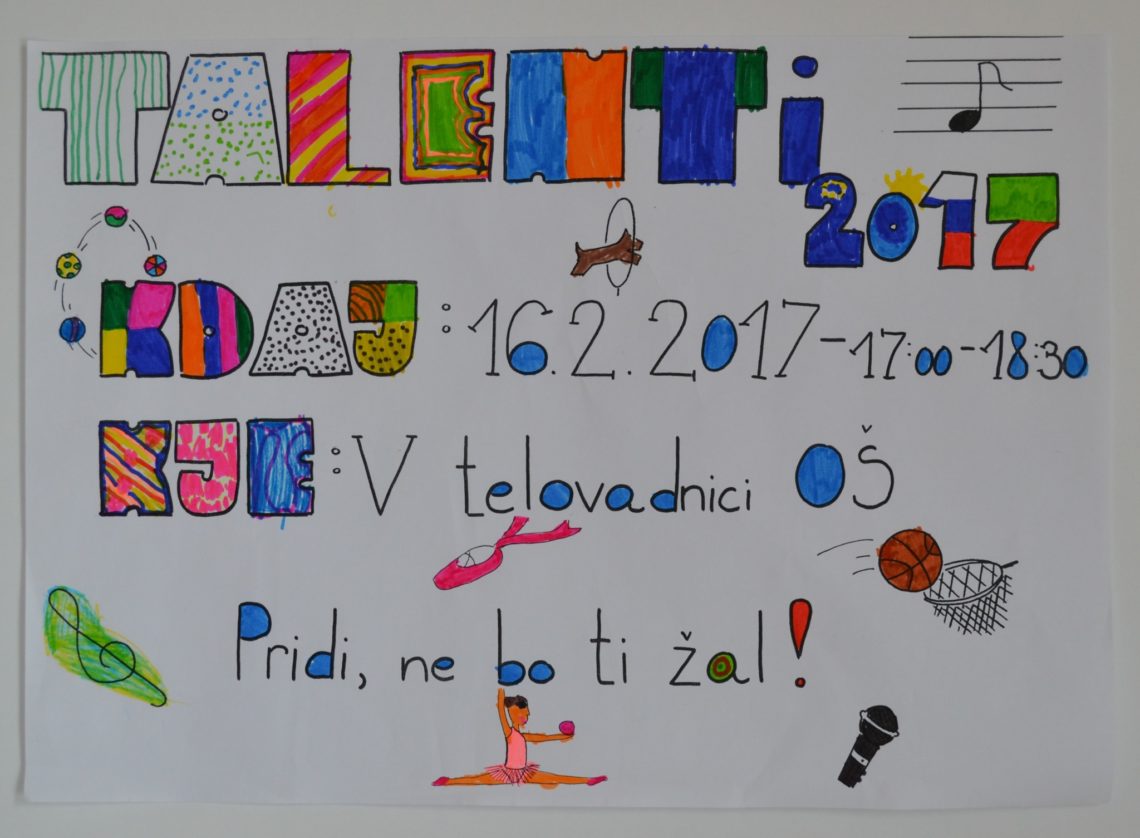 TALENTi
2017
KDAJ: 16.2.2017-17:00-18:30
KJE: V telovadnici OŠ
Pridi, ne bo ti žal!